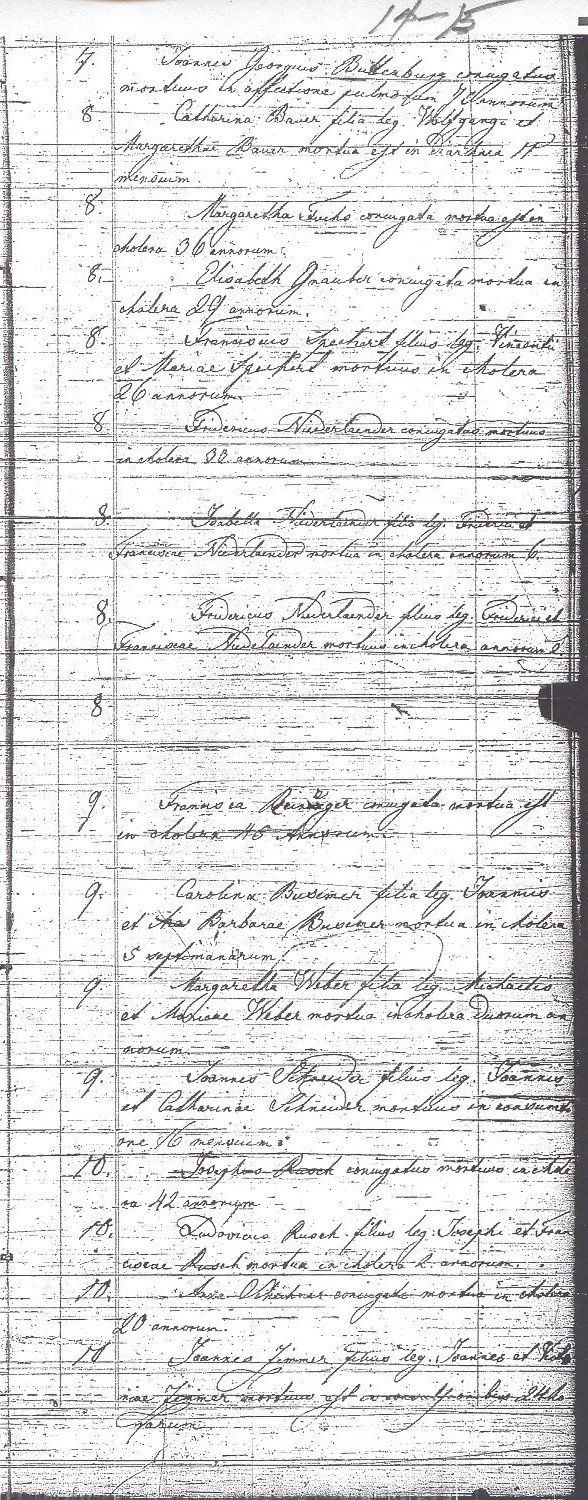 14-15
7. Joannes Georgius Butterburg conjugatus
mortuus in affectione pulmonum annorum
8 Catharina Bauer filia leg. Wolfgangi et
Margarethae Bauer mortua est in diarhaea 17
mensium
8. Margaretha Fuchs conjugata mortua est in
cholera 36 annorum.
8. Elisabeth Gnauber conjugata mortua in
cholera 29 annorum.
8. Franciscus Speckert filius leg. Vincentii
et Mariae Speckert mortuus in cholera
26 annorum.
8 Fridericus Niederlaender conjugatus mortuus
in cholera 33 annorum
8. Isabella Niederlaender filia leg. Friderici et
Franciscae Niederlaender mortua in cholera annorum 6.
8. Fridericus Niederlaender filius leg. Friderici et
Franciscae Niederlaender mortuus in cholera annorum
8
9. Francisca conjugata mortua est
in cholera 45 annorum.
9. Carolina Busemer filia leg. Joannis
et Barbarae Busemer mortua in cholera
5 septimanarum.
9 Margaretha Weber filia leg. Michaelis
et Mariae Weber mortua in cholera duorum an
norum.
9. Joannes Schneider filius leg. Joannis
et Catharinae Schneider mortuus in consumti
one 16 mensium.
10. Josephus Rusch conjugatus mortuus in chole
ra 42 annorum
10. Ludovicus Rusch filius leg. Josephi et Fran
ciscae Rusch mortuus in cholera 2 annorum.
10. Anna conjugata mortua in cholera
20 annorum.
10 Joannes Zimmer filius leg. Joannes et
Zimmer mortuus est in convulsionibus 24 ho
rarum